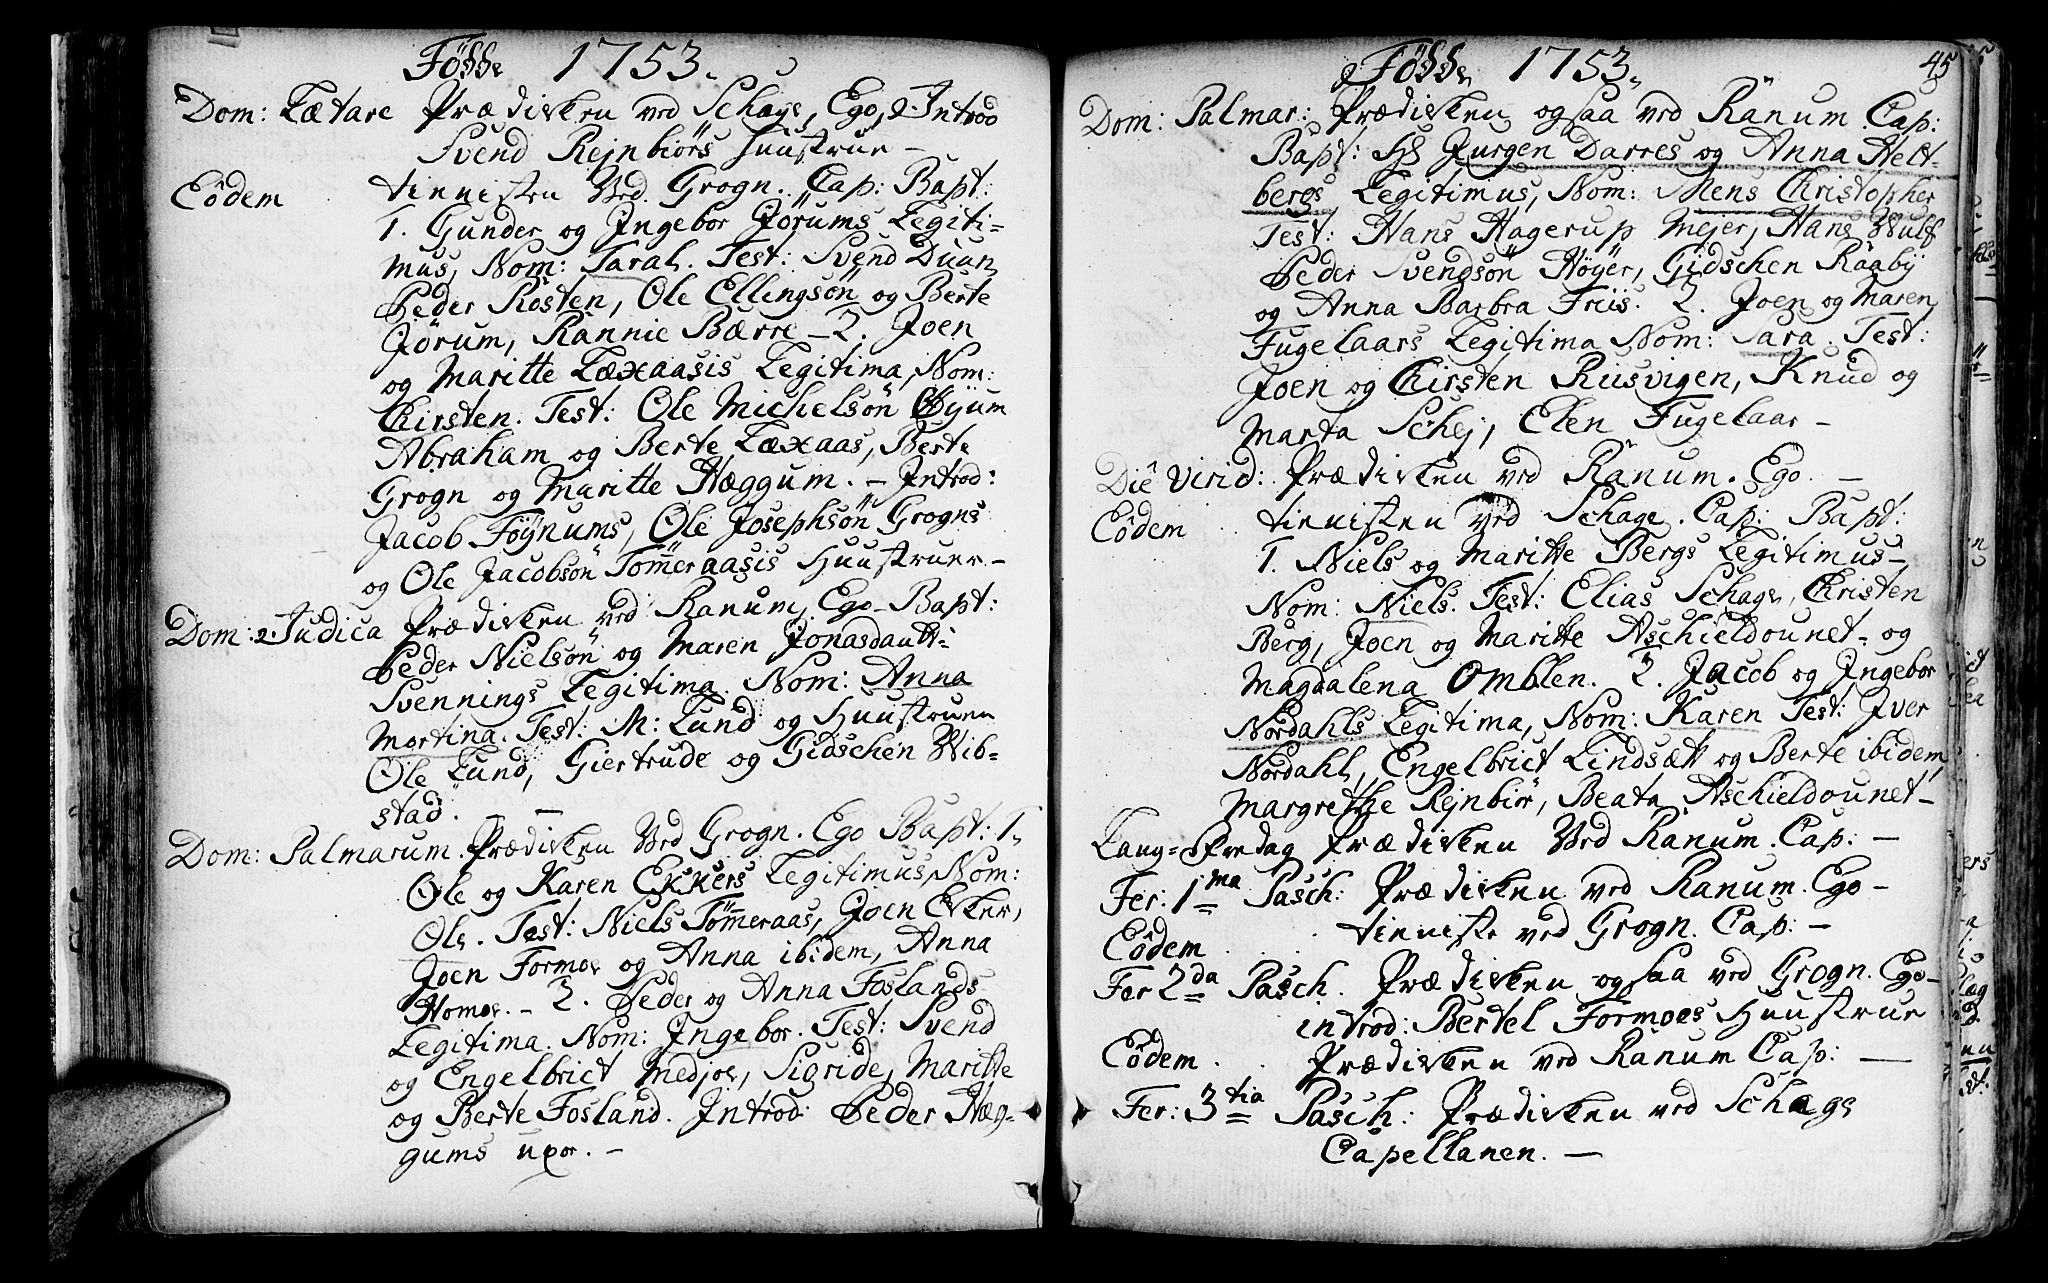 Födde 1753.
Dom: Lætare Prædiken ved Schage, Ego, Introd
Svend Rejnbiörs Huustrue –
Eôdem tienisten Ved Grogn. Cap: Bapt:
1. Gunder og Ingebor Jörums Legiti-
mus, Nom: Taral. Test: Svend Duun,
Peder Rosten, Ole Ellingsön og Berte
Jörum, Rannie Bærre – 2. Joen
og Maritte Læxaasis Legitima, Nom:
Chirsten. Test: Ole Michelsön Öyum
Abraham og Berte Læxaas, Berte
Grogn og Maritte Hæggum. – Introd:
Jacob Föÿnums, Ole Josephsön Grogns
og Ole Jacobsön Tömeraasis Huustruer –
Dom: Judica Prædiken ved Ranum, Ego – Bapt:
Peder Nielsön og Maren Jonasdautt:
Svennings Legitima. Nom: Anna
Martina. Test: M: Lund og Huustruen
Ole Lund, Giertrude og Gidschen Wib-
stad. –
Dom: Palmarum. Prædiken Ved Grogn. Ego Bapt: 1.
Ole og Karen Ekkers Legitimus, Nom:
Ole. Test: Niels Tömeraas, Joen Ekker,
Joen Formoe og Anna ibidem, Anna
Homoe. – 2. Peder og Anna Foslands
Legitima. Nom: Ingebor. Test: Svend
og Engelbrict Medjoe, Sigride, Maritte
og Berte Fosland. Introd: Peder Hæg-
gums uxor. –
Födde 1753.
45
Dom: Palmar: Prædiken og saa ved Ranum Cap:
Bapt: Hs Jurgen Darres og Anna Helt-
bergs Legitimus, Nom: Mens Christopher
Test: Hans Hagerup Mejer, Hans Wulf
Peder Svendsön Höÿer, Gidschen Raabÿ
og Anna Barbra Friis. 2. Joen og Maren
Fugelaars Legitima Nom: Sara. Test:
Joen og Chirsten Rusvigen, Knud og
Marta Schej, Elen Fugelaar –
Diê Virid: Prædiken ved Ranum. Ego. –
Eôdem tienisten ved Schage. Cap: Bapt:
1. Niels og Maritte Bergs Legitimus –
Nom: Niels. Test: Elias Schage, Christen
Berg, Joen og Maritte Aschieldounet – og
Magdalena Omblen. 2. Jacob og Ingebor
Nordahls Legitima, Nom: Karen Test: Iver
Nordahl, Engelbrict Lindsætt og Berte ibidem,
Margrethe Rejnbiör, Beata Aschieldounet –
Lang-Fredag Prædiken Ved Ranum. Cap: –
Fer: 1ma Pasch: Prædiken ved Ranum. Ego –
Eôdem tieniste ved Grogn. Cap: –
Fer 2da Pasch. Prædiken og saa ved Grogn. Ego –
introd: Bertel Formoes Huustrue
Eôdem. Prædiken ved Ranum Cap: –
Fer: 3tia Pasch: Prædiken ved Schage
Capellanen. –